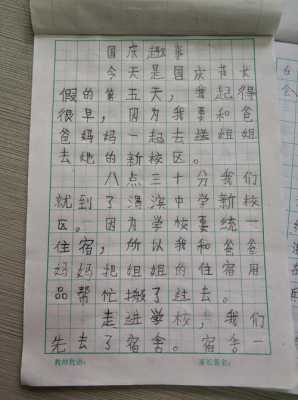 国庆趣事
今天是国庆节长
假的第五天，我起得
很早，因为我要和爸
爸妈妈一起去送姐姐
去她的新校区。
八点三十分我们
就到了涡滨中学新校
区。因为学校要统一
住宿，所以我和爸爸
妈妈把姐姐的住宿用
品帮忙搬了进去。
走进学校，我们
先去了宿舍。宿舍一
教师批语：
家长签名：